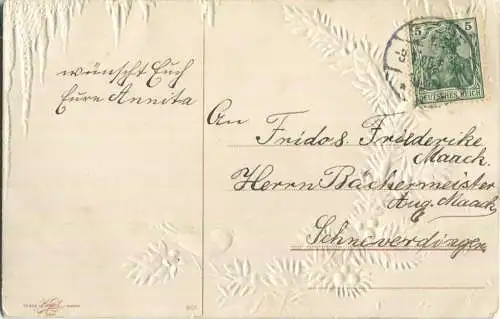 wünscht Euch
Eure Annita
An
Fridos. Friederike
Maach.
Herrn Bäckermeister
Aug. Maack
Schneverdingen
5 5
DEUTSCHES REICH